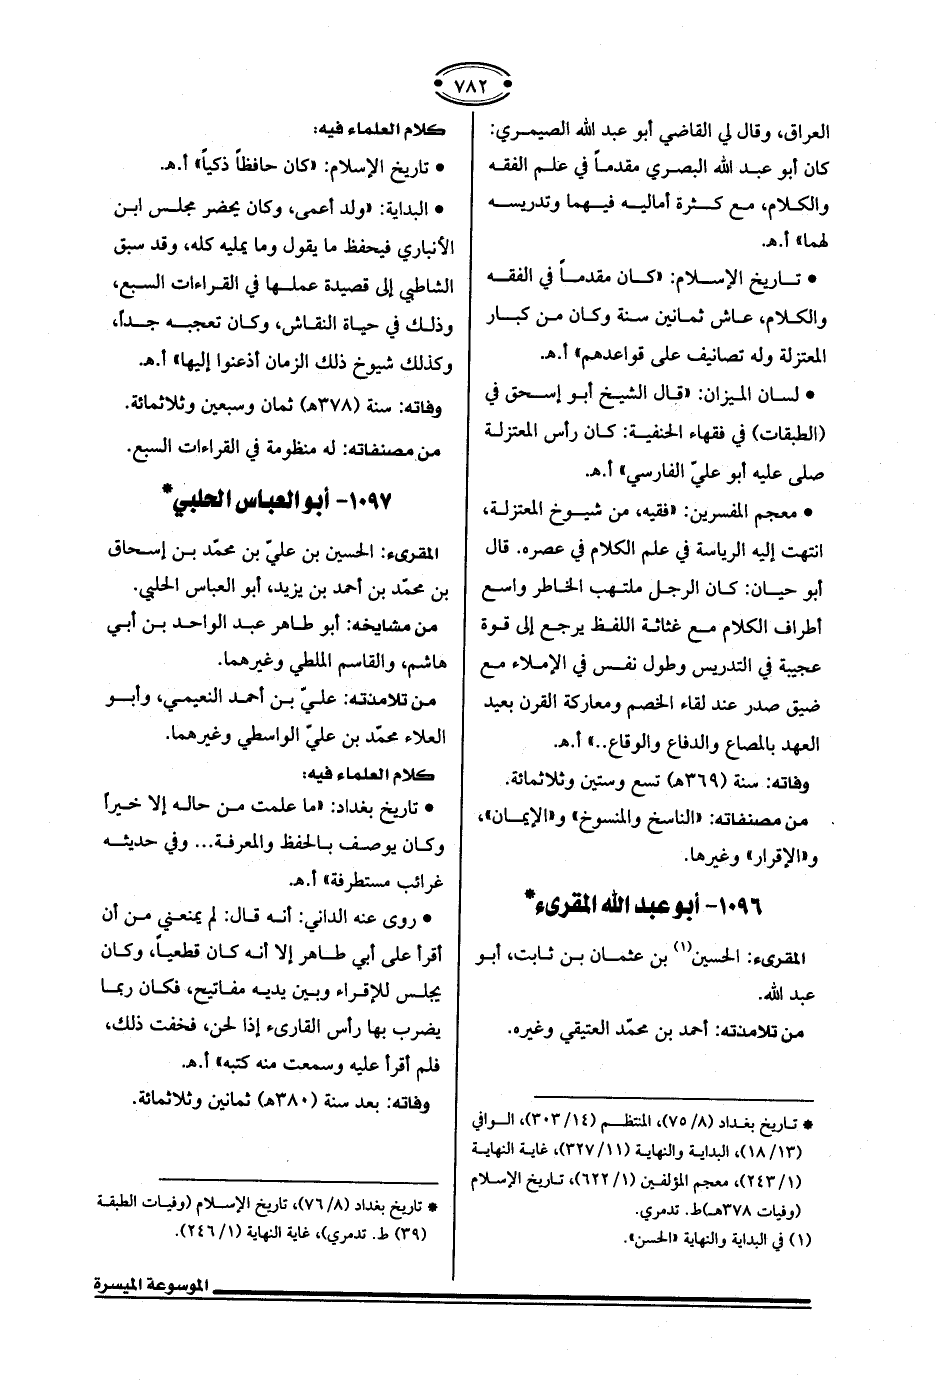 ٧٨٢
العراق، وقال لي القاضي أبو عبد الله الصيمري:
كان أبو عبد الله البصري مقدماً في علم الفقه
والكلام، مع كثرة أماليه فيهما وتدريسه
لهما» أ.هـ.
• تاريخ الإسلام: «كان مقدماً في الفقه
والكلام، عاش ثمانين سنة وكان من كبار
المعتزلة وله تصانيف على قواعدهم» أ.هـ.
• لسان الميزان: «قال الشيخ أبو إسحق في
(الطبقات) في فقهاء الحنفية: كان رأس المعتزلة
صلى عليه أبو عليّ الفارسي» أ.هـ.
• معجم المفسرين: «فقيه، من شيوخ المعتزلة،
انتهت إليه الرياسة في علم الكلام في عصره. قال
أبو حيان: كان الرجل ملتهب الخاطر واسع
أطراف الكلام مع غثاثة اللفظ يرجع إلى قوة
عجيبة في التدريس وطول نفس في الإملاء مع
ضيق صدر عند لقاء الخصم ومعاركة القرن بعيد
العهد بالمصاع والدفاع والوقاع..» أ.هـ.
وفاته: سنة (٣٦٩هـ) تسع وستين وثلاثمائة.
من مصنفاته: «الناسخ والمنسوخ» و«الإيمان»،
و«الإقرار» وغيرها.
١٠٩٦- أبو عبد الله المقرىء*
المقرىء: الحسين(١) بن عثمان بن ثابت، أبو
عبد الله.
من تلامذته: أحمد بن محمّد العتيقي وغيره.
* تاريخ بغداد (٨/ ٧٥)، المنتظم (١٤/ ٣٠٣)، الوافي
(١٣/ ١٨)، البداية والنهاية (١١/ ٣٢٧)، غاية النهاية
(١/ ٢٤٣)، معجم المؤلفين (١/ ٦٢٢)، تاريخ الإسلام
(وفيات ٣٧٨هـ)ط. تدمري.
(١) في البداية والنهاية «الحسن».
كلام العلماء فيه:
• تاريخ الإسلام: «كان حافظاً ذكياً» أ.هـ.
• البداية: «ولد أعمى، وكان يحضر مجلس ابن
الأنباري فيحفظ ما يقول وما يمليه كله، وقد سبق
الشاطبي إلى قصيدة عملها في القراءات السبع،
وذلك في حياة النقاش، وكان تعجبه جداً،
وكذلك شيوخ ذلك الزمان أذعنوا إليها» أ.هـ.
وفاته: سنة (٣٧٨هـ) ثمان وسبعين وثلاثمائة.
من مصنفاته: له منظومة في القراءات السبع.
١٠٩٧- أبو العباس الحلبي*
المقرىء: الحسين بن عليّ بن محمّد بن إسحاق
بن محمّد بن أحمد بن يزيد، أبو العباس الحلبي.
من مشايخه: أبو طاهر عبد الواحد بن أبي
هاشم، والقاسم الملطي وغيرهما.
من تلامذته: عليّ بن أحمد النعيمي، وأبو
العلاء محمّد بن عليّ الواسطي وغيرهما.
كلام العلماء فيه:
• تاريخ بغداد: «ما علمت من حاله إلا خيراً
وكان يوصف بالحفظ والمعرفة... وفي حديثه
غرائب مستطرفة» أ.هـ.
• روى عنه الداني: أنه قال: لم يمنعني من أن
أقرأ على أبي طاهر إلا أنه كان قطعياً، وكان
يجلس للإقراء وبين يديه مفاتيح، فكان ربما
يضرب بها رأس القارىء إذا لحن، فخفت ذلك،
فلم أقرأ عليه وسمعت منه كتبه» أ.هـ.
وفاته: بعد سنة (٣٨٠هـ) ثمانين وثلاثمائة.
* تاريخ بغداد (٨/ ٧٦)، تاريخ الإسلام (وفيات الطبقة
(٣٩) ط. تدمري)، غاية النهاية (١/ ٢٤٦).
الموسوعة الميسرة